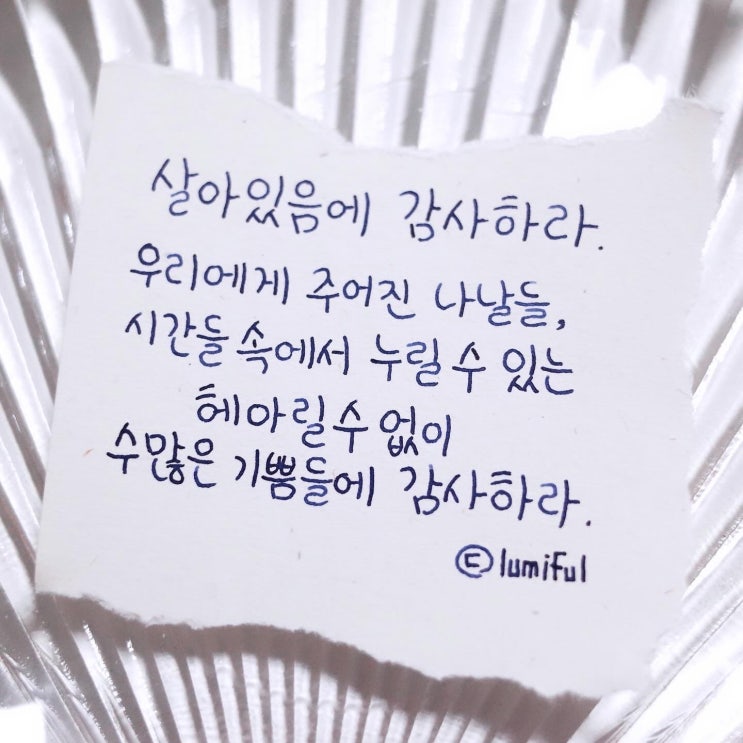 살아있음에 감사하라.
우리에게 주어진 나날들,
시간들 속에서 누릴 수 있는
헤아릴 수 없이
수많은 기쁨들에 감사하라.
ⓒ lumiful